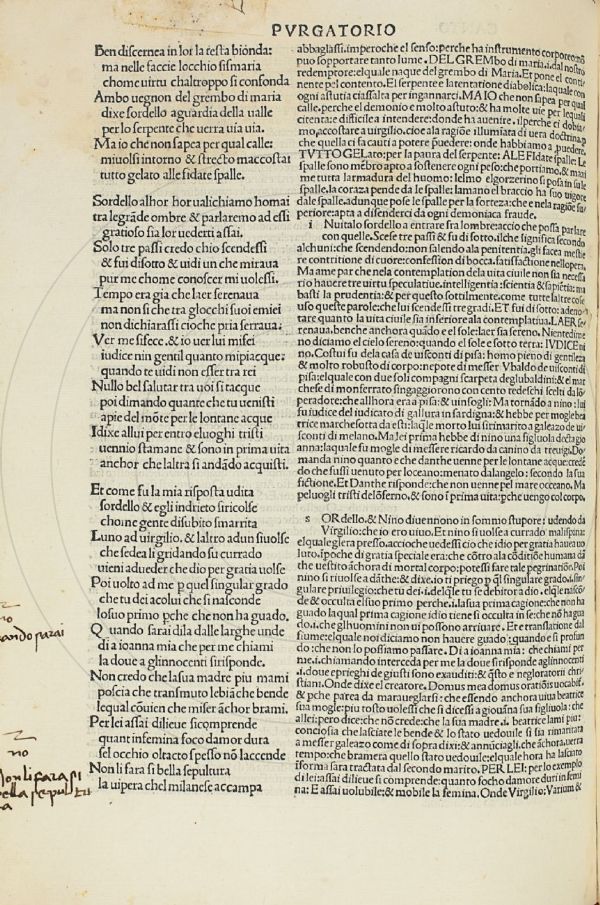 PVRGATORIO
Ben discernea in lor la testa bionda:
ma nelle faccie locchio sismaria
chome uirtu chaltroppo si confonda
Ambo uegnon del grembo di maria
dixe sordello aguardia della ualle
per lo serpente che uerra uia uia.
Ma io che non sapea per qual calle:
miuolsi intorno & strecto maccostai
tutto gelato alle fidate spalle.
Sordello alhor hor ualichiamo homai
tra legrãde ombre & parlaremo ad essi
gratioso fia lor uedetti assai.
Solo tre passi credo chio scendessi
& fui disotto & uidi un che miraua
pur me chome conoscer mi uolessi.
Tempo era gia che laer serenaua
ma non si che tra glocchi suoi emiei
non dichiarassi cioche pria serraua:
Ver me sifece. & io uer lui mifei
iudice nin gentil quanto mipiacque:
quando te uidi non esser tra rei
Nullo bel salutar tra uoi si tacque
poi dimando quante che tu uenisti
apie del mõte per le lontane acque
Idixe allui per entro eluoghi tristi
uennio stamane & sono in prima uita
anchor che laltra si andãdo acquisti.
Et come fu la mia risposta udita
sordello & egli indrieto siricolse
chome gente disubito smarrita
Luno ad uirgilio. & laltro adun siuolse
che sedea li gridando su currado
uieni adueder che dio per gratia uolse
Poi uolto ad me p quel singular grado
che tu dei acolui che si nasconde
losuo primo pche che non ha guado.
Quando sarai dila dalle larghe unde
di a ioanna mia che per me chiami
la doue a glinnocenti sirisponde.
Non credo che lasua madre piu mami
poscia che transmuto lebiãche bende
lequal cõuien che miser ãchor brami.
Per lei assai dilieue sicomprende
quant infemina foco damor dura
sel occhio oltacto spesso nõ laccende
Non li fara si bella sepultura
la uipera chel milanese accampa
abbaglassi. imperoche el senso: perche ha instrumento corporeo nõ
puo sopportare tanto lume. DEL GREMbo di maria. i. dal nostro
redemptore: elquale naque del grembo di Maria. Et pone el conti
nente pel contento. El serpente e latentatione diabolica: laquale con
ogni astutia ciassalta per ingannarci. MA IO che non sapea per qual
calle. perche el demonio e molto astuto: & ha molte uie per lequali
citenta: e difficile a intendere: donde ha auenire. il perche ci dobia
mo. accostare a uirgilio. cioe ala ragiõe illumiata di uera doctrina. p
che quella ci fa cauti a potere puedere: onde habbiamo a puedere.
TVTTO GELato: per la paura del serpente: ALE FIdate spalle: Le
spalle sono mébro apto a sostenere ogni peso: che portiamo. & mai
me tutta larmadura del huomo: lelmo elgorzerino si posa in su le
spalle. la coraza pende da le spalle: lamano el braccio ha suo uigore
dale spalle. adunque pose le spalle per la forteza: che e nela ragiõe su/
periore: apta a difenderci da ogni demoniaca fraude.
i Nuitalo sordello a entrare fra lombre: accio che possa parlare
con quelle. Scese tre passi & fu di sotto. ilche significa secondo
alchuni: che scendendo: non salendo ala penitentia. gli facea mestie
re contritione di cuore: confession di bocca. satisfactione nellopera.
Ma ame par che nela contemplation dela uita ciuile non sia necessa
rio hauere tre uirtu speculatiue. intelligentia: scientia & sapiẽtia: ma
basti la prudentia: & per questo sottilmente. come tutte laltre cose
uso queste parole: che lui scendessi tre gradi. ET fui di sotto: adeno/
tare quanto la uita ciuile sia inferiore ala contemplatiua. LAER se
renaua. benche anchora quãdo e el sole: laer sia sereno. Nientedime
no diciamo el cielo sereno: quando e el sole e sotto terra: IVDICE ni
no. Costui fu dela casa de uisconti di pisa: homo pieno di gentileza
& molto robusto di corpo: nepote di messer Vbaldo de uisconti di
pisa: elquale con due soli compagni scarpeta degluba dini: & el mar
chese di monferrato singaggiorono con cento tedeschi scelti da lo ĩ
peradore: che allhora era a pisa: & uinsogli: Ma tornãdo a nino: lui
fu iudice del iudicato di gallura in sardigna: & hebbe per moglie bea
trice marchesotta da esti: laqle morto lui sirimarito a galeazo de ui
sconti di melano. Ma lei prima hebbe di nino una figluola decta gio
anna: laquale fu mogle di messere ricardo da canino da treuigi. Do
manda nino quanto e che danthe uenne per le lontane acque: crede
do che fussi uenuto per loceano: menato dalangelo: secondo la sua
fictione. Et Danthe risponde: che non uenne pel mare occeano. Ma
peluogli tristi delõferno. & sono ĩ prima uita: pche uengo col corpo.
s ORdello. & Nino diuennono in sommo stupore: udendo da
Virgilio: che io ero uiuo. Et nino si uolse a currado malispina:
elquale glera presso. accioche uedessi cio che idio per gratia haueua uo
luto. ipoche di gratia speciale era: che cõtro ala cõditiõe humana dã
the uestito ãchora di mortal corpo: potessi fare tale pegrinatiõe. Poi
nino si riuolse a dãthe: & dixe. io ti priego p ql singulare grado. i. sin
gulare priuilegio: che tu dei. i. delqle tu se debitor a dio. elqle nascõ
de & occulta el suo primo perche. i. la sua prima cagione: che non ha
guado laqual prima cagione idio tiene si occulta in se: che nõ ha gua
do. i. che glhuomini non ui possono arriuare. Et e translatione dal
fiume: elquale noi diciamo non hauere guado: quando e si profun
do: che non lo possiamo passare. Di a ioanna mia: che chiami per
me. i. chiamando interceda per me la doue si risponde aglinnocenti
. i. doue eprieghi de giusti sono exauditi: & q̃sto e neglioratorii chri
stiani. Onde dixe el creatore. Domus mea domus oratiõis uocabif.
& pche parea da marauegliarsi: che essendo anchora uiua beatrice
sua mogle: piu tosto uolessi che si dicessi a giouãna sua figluola: che
allei: pero dice: che nõ crede: che la sua madre. i. beatrice lami piu:
conciosia che lasciate le bende & lo stato ueduoile si sia rimaritata
a messer galeazo come di sopra dixi: & annũciagli. che ãchora. uerra
tempo: che bramera quello stato ueduoile: elquale hora ha lasciato
iforma sara trattata dal secondo marito. PER LEI: per lo exemplo
di lei assai dilieue si comprende: quanto focho damore duri in femi
na: E assai uolubile: & mobile la femina. Onde Virgilio: Varium &
no
no